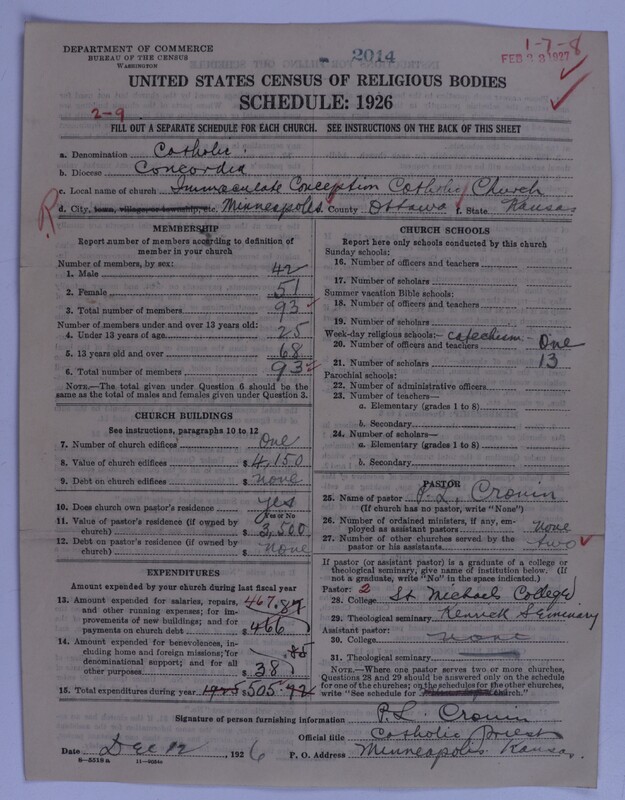 DEPARTMENT OF COMMERCE
BUREAU OF THE CENSUS
WASHINGTON
2014
1-7-8
FEB 1927
UNITED STATES CENSUS OF RELIGIOUS BODIES
SCHEDULE: 1926
2-9
FILL OUT A SEPARATE SCHEDULE FOR EACH CHURCH. SEE INSTRUCTIONS ON THE BACK OF THIS SHEET
a. Denomination Catholic
b. Diocese Concordia
c. Local name of church Immaculate Conception Catholic Church
R
d. City, town, village, or township, etc. Minneapolis County Ottawa f. State Kansas
MEMBERSHIP
Report number of members according to definition of
member in your church
Number of members, by sex:
1. Male 42
2. Female 51
3. Total number of members 93
Number of members under and over 13 years old:
4. Under 13 years of age 25
5. 13 years old and over 68
6. Total number of members 93
NOTE.—The total given under Question 6 should be
same as the total of males and females given under Question 3.
CHURCH BUILDINGS
See instructions, paragraphs 10 to 12
7. Number of church edifices One
8. Value of church edifices $ 4,150
9. Debt on church edifices $ none
10. Does church own pastor's residence yes
Yes or No
11. Value of pastor's residence (if owned by
church) $ 3,500
12. Debt on pastor's residence (if owned by
church) $ none
EXPENDITURES
Amount expended by your church during last fiscal year
13. Amount expended for salaries, repairs, 467.87
and other running expenses; for im-
provements of new buildings; and for
payments on church debt $ 466
14. Amount expended for benevolences, in-
cluding home and foreign missions; for
denominational support; and for all
other purposes $ 38
15. Total expenditures during year 1925 $ 505.72
CHURCH SCHOOLS
Report here only schools conducted by this church
Sunday schools:
16. Number of officers and teachers
17. Number of scholars
Summer vacation Bible schools:
18. Number of officers and teachers
19. Number of scholars
Week-day religious schools:— Catechism
20. Number of officers and teachers One
21. Number of scholars 13
Parochial schools:
22. Number of administrative officers
23. Number of teachers—
a. Elementary (grades 1 to 8)
b. Secondary
24. Number of scholars—
a. Elementary (grades 1 to 8)
b. Secondary
PASTOR
25. Name of pastor P. L. Cronin
(If church has no pastor, write "None")
26. Number of ordained ministers, if any, em-
ployed as assistant pastors none
27. Number of other churches served by the
pastor or his assistants two
If pastor (or assistant pastor) is a graduate of a college or
theological seminary, give name of institution below. (If
not a graduate, write "No" in the space indicated.)
Pastor: 2
28. College St Michaels College
29. Theological seminary Kenrick Seminary
Assistant pastor:
30. College none
31. Theological seminary
NOTE.—Where one pastor serves two or more churches,
Questions 28 and 29 should be answered only on the schedule
for one of the churches; on the schedules for the other churches,
write "See schedule for church."
Signature of person furnishing information P. L. Cronin
Official title Catholic Priest
Date Dec 12 1926 P. O. Address Minneapolis Kansas
8-5518a